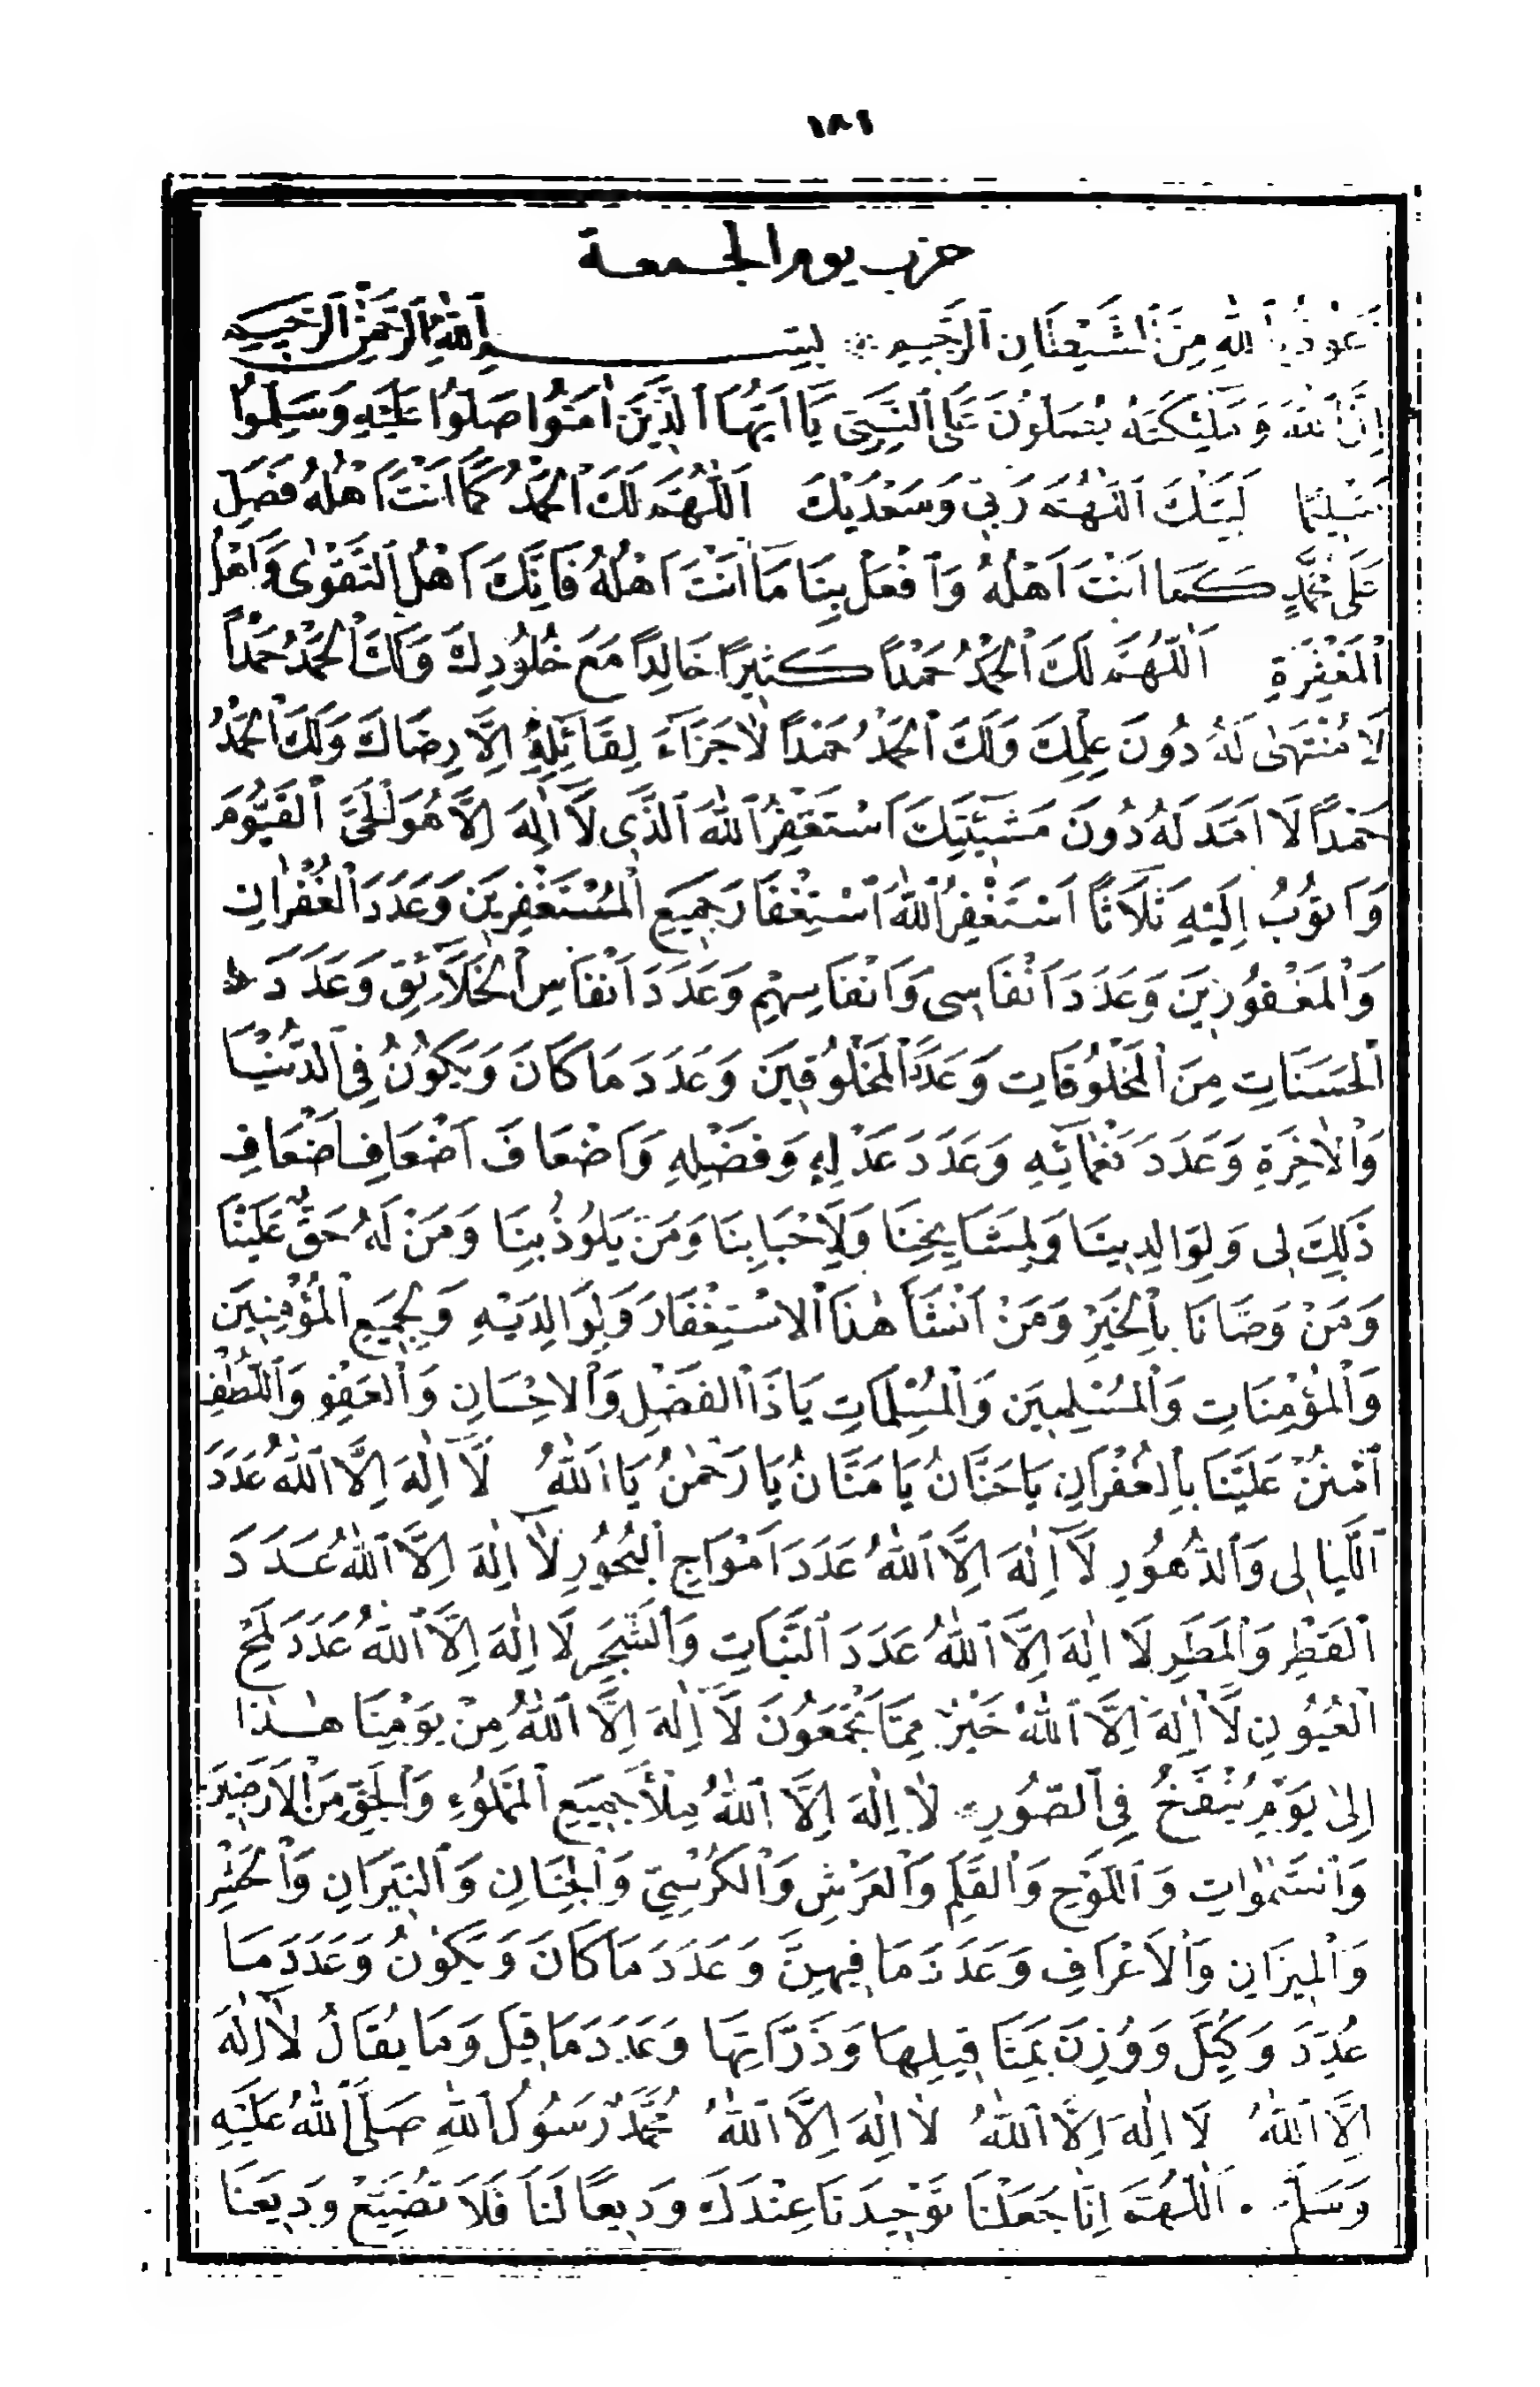 ١٨١
حزب يوم الجمعة
اَعُوذُ بِاللّٰهِ مِنَ الشَّيْطَانِ الرَّجِيمِ ۞ بِسْمِ اللّٰهِ الرَّحْمٰنِ الرَّحِيمِ
اِنَّ اللّٰهَ وَمَلٰئِكَتَهُ يُصَلُّونَ عَلَى النَّبِيِّ يَا اَيُّهَا الَّذِينَ اٰمَنُوا صَلُّوا عَلَيْهِ وَسَلِّمُوا
تَسْلِيمًا لَبَّيْكَ اَللّٰهُمَّ رَبِّي وَسَعْدَيْكَ اَللّٰهُمَّ لَكَ الْحَمْدُ كَمَا اَنْتَ اَهْلُهُ فَصَلِّ
عَلَى مُحَمَّدٍ كَمَا اَنْتَ اَهْلُهُ وَافْعَلْ بِنَا مَا اَنْتَ اَهْلُهُ فَاِنَّكَ اَهْلُ التَّقْوٰى وَاَهْلُ
الْمَغْفِرَةِ اَللّٰهُمَّ لَكَ الْحَمْدُ حَمْدًا كَثِيرًا خَالِدًا مَعَ خُلُودِكَ وَلَكَ الْحَمْدُ حَمْدًا
لَا مُنْتَهٰى لَهُ دُونَ عِلْمِكَ وَلَكَ الْحَمْدُ حَمْدًا لَا جَزَاءَ لِقَائِلِهِ اِلَّا رِضَاكَ وَلَكَ الْحَمْدُ
حَمْدًا لَا اَمَدَ لَهُ دُونَ مَشِيئَتِكَ اَسْتَغْفِرُ اللّٰهَ الَّذِي لَا اِلٰهَ اِلَّا هُوَ الْحَيَّ الْقَيُّومَ
وَاَتُوبُ اِلَيْهِ ثَلَاثًا اَسْتَغْفِرُ اللّٰهَ اسْتِغْفَارَ جَمِيعِ الْمُسْتَغْفِرِينَ وَعَدَدَ الْغُفْرَانِ
وَالْمَغْفُورِينَ وَعَدَدَ اَنْفَاسِي وَاَنْفَاسِهِمْ وَعَدَدَ اَنْفَاسِ الْخَلَائِقِ وَعَدَدَ
الْحَسَنَاتِ مِنَ الْمَخْلُوقَاتِ وَعَدَدَ الْمَخْلُوقِينَ وَعَدَدَ مَا كَانَ وَيَكُونُ فِي الدُّنْيَا
وَالْاٰخِرَةِ وَعَدَدَ نَعْمَائِهِ وَعَدَدَ عَدْلِهِ وَفَضْلِهِ وَاَضْعَافَ اَضْعَافِ اَضْعَافِ
ذٰلِكَ لِي وَلِوَالِدِينَا وَلِمَشَايِخِنَا وَلِاَحْبَابِنَا وَمَنْ يَلُوذُ بِنَا وَمَنْ لَهُ حَقٌّ عَلَيْنَا
وَمَنْ وَصَّانَا بِالْخَيْرِ وَمَنْ اَنْشَأَ هٰذَا الْاِسْتِغْفَارَ وَلِوَالِدَيْهِ وَلِجَمِيعِ الْمُؤْمِنِينَ
وَالْمُؤْمِنَاتِ وَالْمُسْلِمِينَ وَالْمُسْلِمَاتِ يَا ذَا الْفَضْلِ وَالْاِحْسَانِ وَالْعَفْوِ وَاللُّطْفِ
اُمْنُنْ عَلَيْنَا بِالْغُفْرَانِ يَا حَنَّانُ يَا مَنَّانُ يَا رَحْمٰنُ يَا اَللّٰهُ لَا اِلٰهَ اِلَّا اللّٰهُ عَدَدَ
اللَّيَالِي وَالدُّهُورِ لَا اِلٰهَ اِلَّا اللّٰهُ عَدَدَ اَمْوَاجِ الْبُحُورِ لَا اِلٰهَ اِلَّا اللّٰهُ عَدَدَ
الْقَطْرِ وَالْمَطَرِ لَا اِلٰهَ اِلَّا اللّٰهُ عَدَدَ النَّبَاتِ وَالشَّجَرِ لَا اِلٰهَ اِلَّا اللّٰهُ عَدَدَ لَمْحِ
الْعُيُونِ لَا اِلٰهَ اِلَّا اللّٰهُ خَيْرٌ مِمَّا يَجْمَعُونَ لَا اِلٰهَ اِلَّا اللّٰهُ مِنْ يَوْمِنَا هٰذَا
اِلىٰ يَوْمِ يُنْفَخُ فِي الصُّورِ لَا اِلٰهَ اِلَّا اللّٰهُ مِلْأَ جَمِيعِ الْمَمْلُوءِ وَالْحَقِّ مَنْ الْاَرَضِينَ
وَالسَّمٰوَاتِ وَاللَّوْحِ وَالْقَلَمِ وَالْعَرْشِ وَالْكُرْسِيِّ وَالْجِنَانِ وَالنِّيرَانِ وَالْحَشْرِ
وَالْمِيزَانِ وَالْاَعْرَافِ وَعَدَدَ مَا فِيهِنَّ وَعَدَدَ مَا كَانَ وَيَكُونُ وَعَدَدَ مَا
عُدِدَ وَكُيِّلَ وَوُزِنَ بِمَثَاقِيلِهَا وَذَرَّاتِهَا وَعَدَدَ مَا قِيلَ وَمَا يُقَالُ لَا اِلٰهَ
اِلَّا اللّٰهُ لَا اِلٰهَ اِلَّا اللّٰهُ لَا اِلٰهَ اِلَّا اللّٰهُ مُحَمَّدٌ رَسُولُ اللّٰهِ صَلَّى اللّٰهُ عَلَيْهِ
وَسَلَّمَ ۰ اَللّٰهُمَّ اِنَّا جَعَلْنَا تَوْحِيدَنَا عِنْدَكَ وَدِيعًا لَنَا فَلَا تُضَيِّعْ وَدِيعَنَا